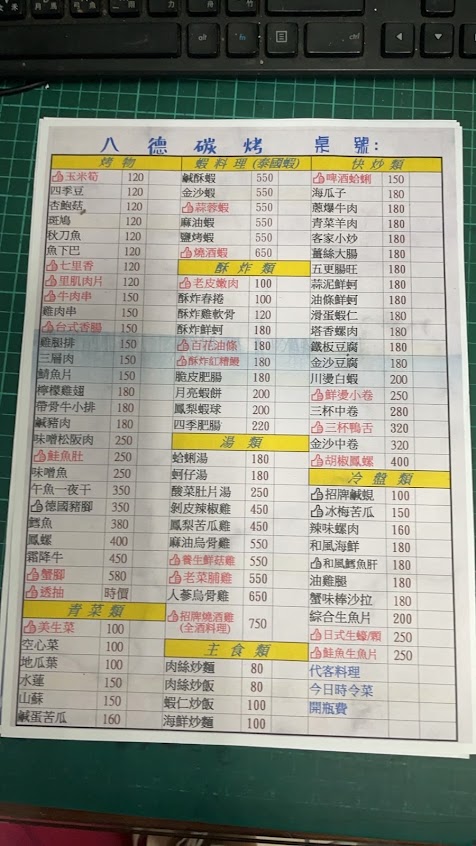 八德碳烤 桌號:
烤物
玉米筍 120
四季豆 120
杏鮑菇 120
斑鳩 120
秋刀魚 120
魚下巴 120
七里香 120
里肌肉片 120
牛肉串 150
雞肉串 150
台式香腸 150
雞腿排 150
三層肉 150
鯖魚片 150
檸檬雞翅 180
帶骨牛小排 180
鹹豬肉 180
味噌松阪肉 250
鮭魚肚 250
味噌魚 250
午魚一夜干 350
德國豬腳 350
鱈魚 380
鳳螺 400
霜降牛 450
蟹腳 580
透抽 時價
青菜類
美生菜 100
空心菜 100
地瓜葉 100
水蓮 150
山蘇 150
鹹蛋苦瓜 160
蝦料理(泰國蝦)
鹹酥蝦 550
金沙蝦 550
蒜蓉蝦 550
麻油蝦 550
鹽烤蝦 550
燒酒蝦 650
酥炸類
老皮嫩肉 100
酥炸春捲 100
酥炸雞軟骨 120
酥炸鮮蚵 180
百花油條 180
酥炸紅糟鰻 180
脆皮肥腸 180
月亮蝦餅 200
鳳梨蝦球 200
四季肥腸 220
湯類
蛤蜊湯 180
蚵仔湯 180
酸菜肚片湯 250
剝皮辣椒雞 450
鳳梨苦瓜雞 450
麻油烏骨雞 550
養生鮮菇雞 550
老菜脯雞 550
人蔘烏骨雞 650
招牌燒酒雞
(全酒料理) 750
主食類
肉絲炒麵 80
肉絲炒飯 80
蝦仁炒飯 100
海鮮炒麵 100
快炒類
啤酒蛤蜊 150
海瓜子 180
蔥爆牛肉 180
青菜羊肉 180
客家小炒 180
薑絲大腸 180
五更腸旺 180
蒜泥鮮蚵 180
油條鮮蚵 180
滑蛋蝦仁 180
塔香螺肉 180
鐵板豆腐 180
金沙豆腐 180
川燙白蝦 200
鮮燙小卷 250
三杯中卷 280
三杯鴨舌 320
金沙中卷 320
胡椒鳳螺 400
冷盤類
招牌鹹蜆 100
冰梅苦瓜 150
辣味螺肉 160
和風海鮮 180
和風鱈魚肝 180
油雞腿 180
蟹味棒沙拉 180
綜合生魚片 200
日式生蠔/顆 250
鮭魚生魚片 250
代客料理
今日時令菜
開瓶費